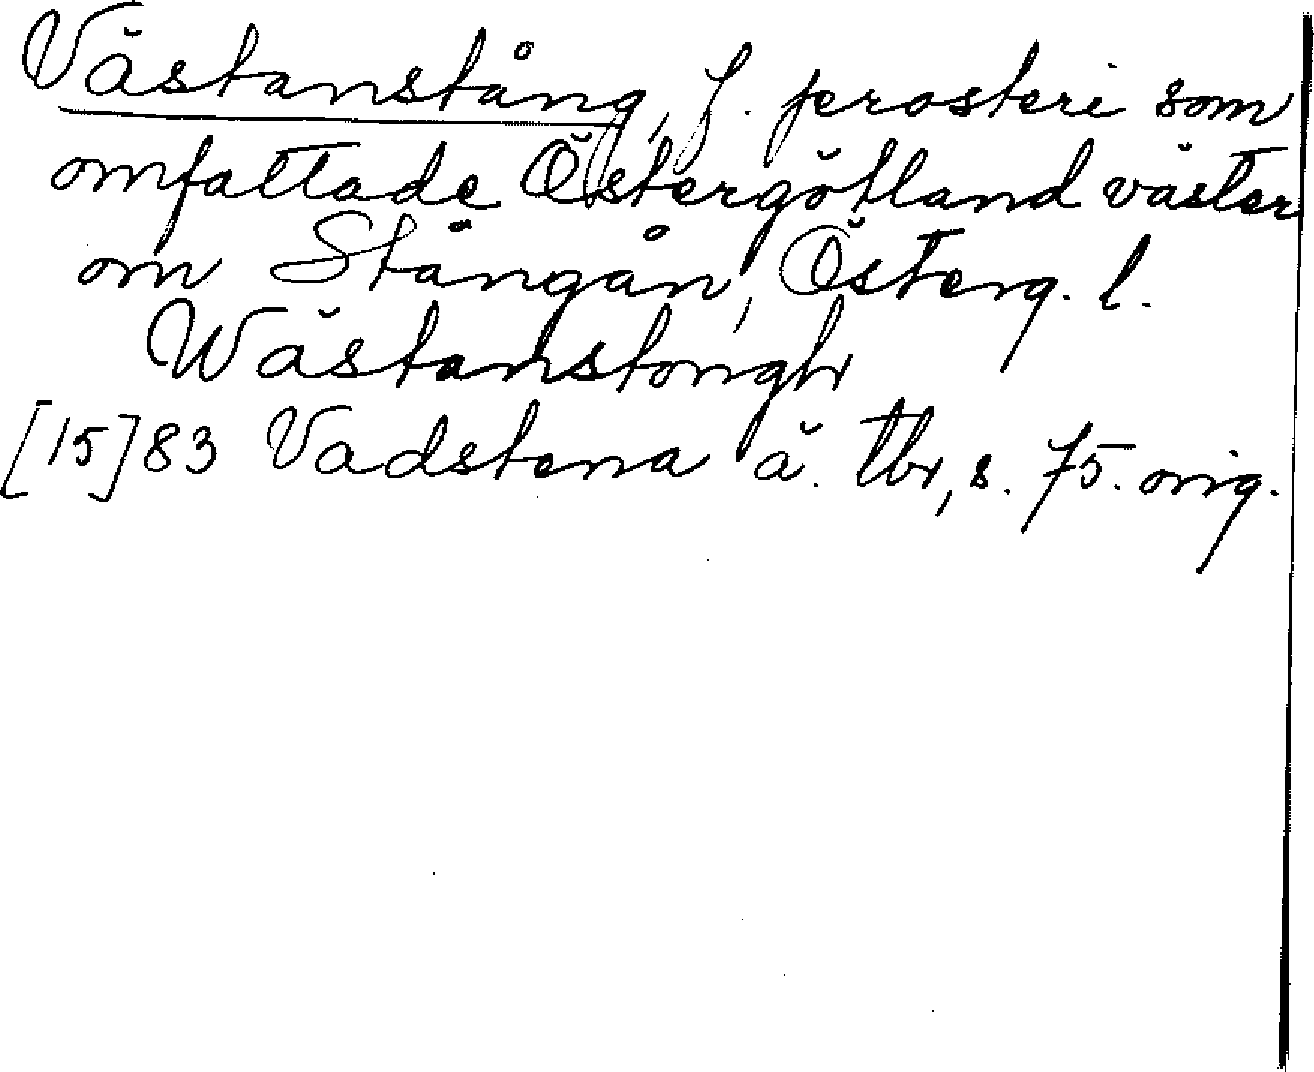 Västanstång, f. prosteri som
omfattade Östergötland väster
om Stångån, Österg. l.
Wästanstongh
[15]83 Vadstena ä. tbr, s. 75. orig.